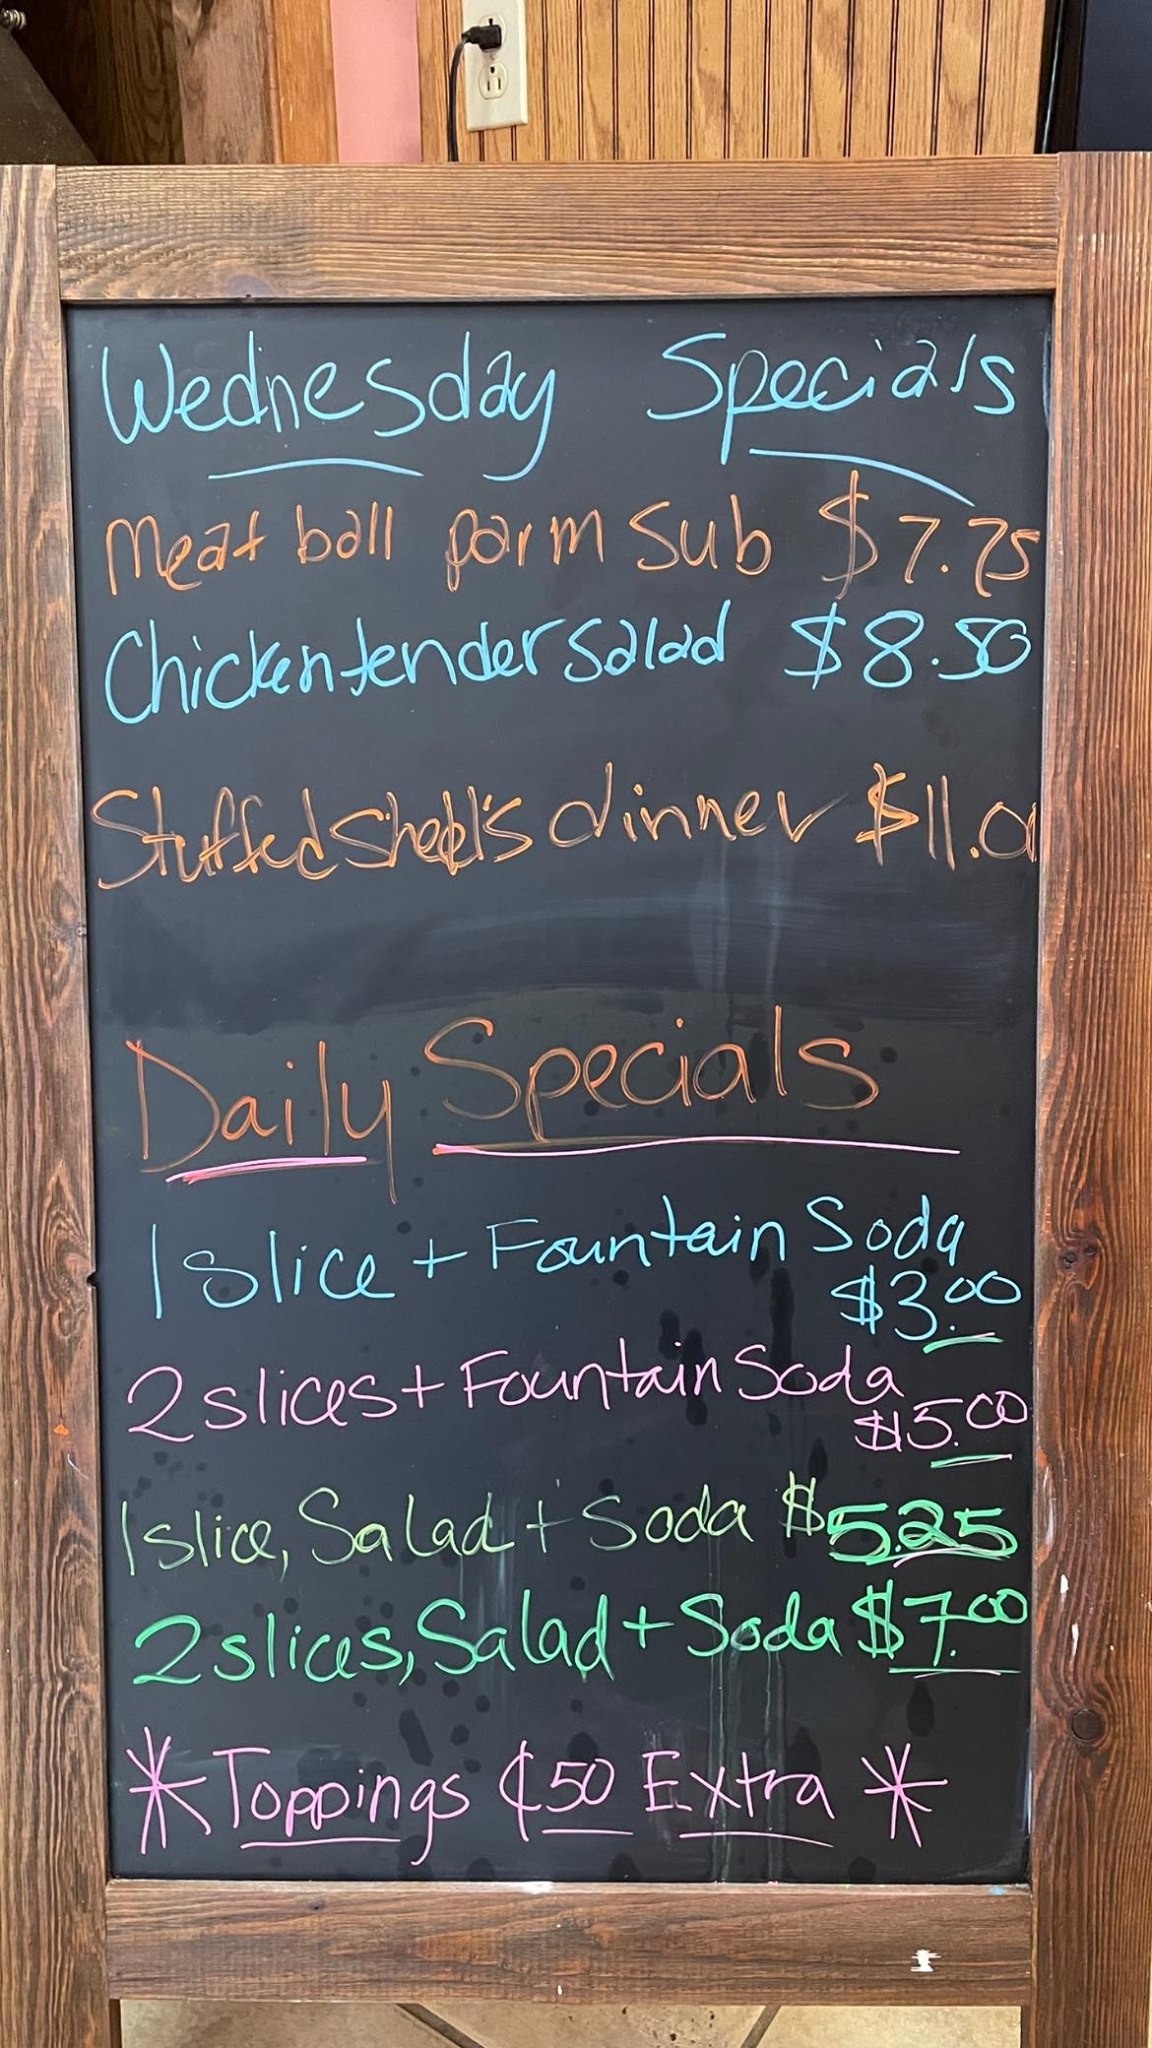 Wednesday Specials
Meat ball parm sub $7.75
Chicken tender salad $8.50
Stuffed Shell's dinner $11.00
Daily Specials
1 slice + Fountain Soda
$3.00
2 slices + Fountain Soda
$5.00
1 slice, Salad + Soda $5.25
2 slices, Salad + Soda $7.00
* Toppings ¢50 Extra *